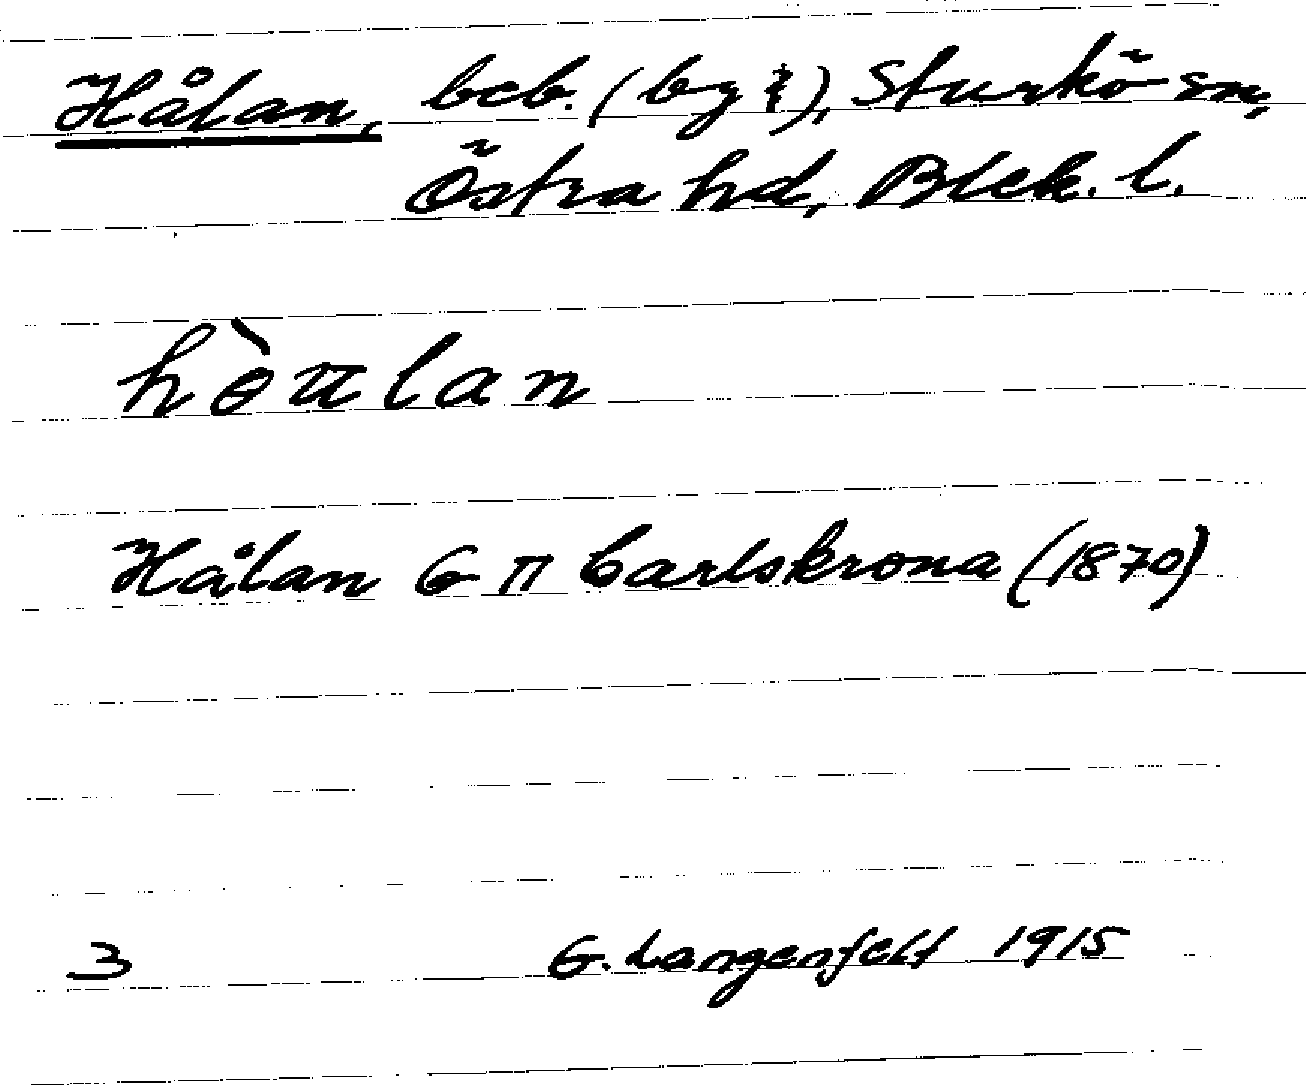 Hålan, beb. (by ?), Sturkö sn,
Östra hd, Blek. l.
hɵ̀ualan
Hålan G π Carlskrona (1870)
3 G. Langenfelt 1915